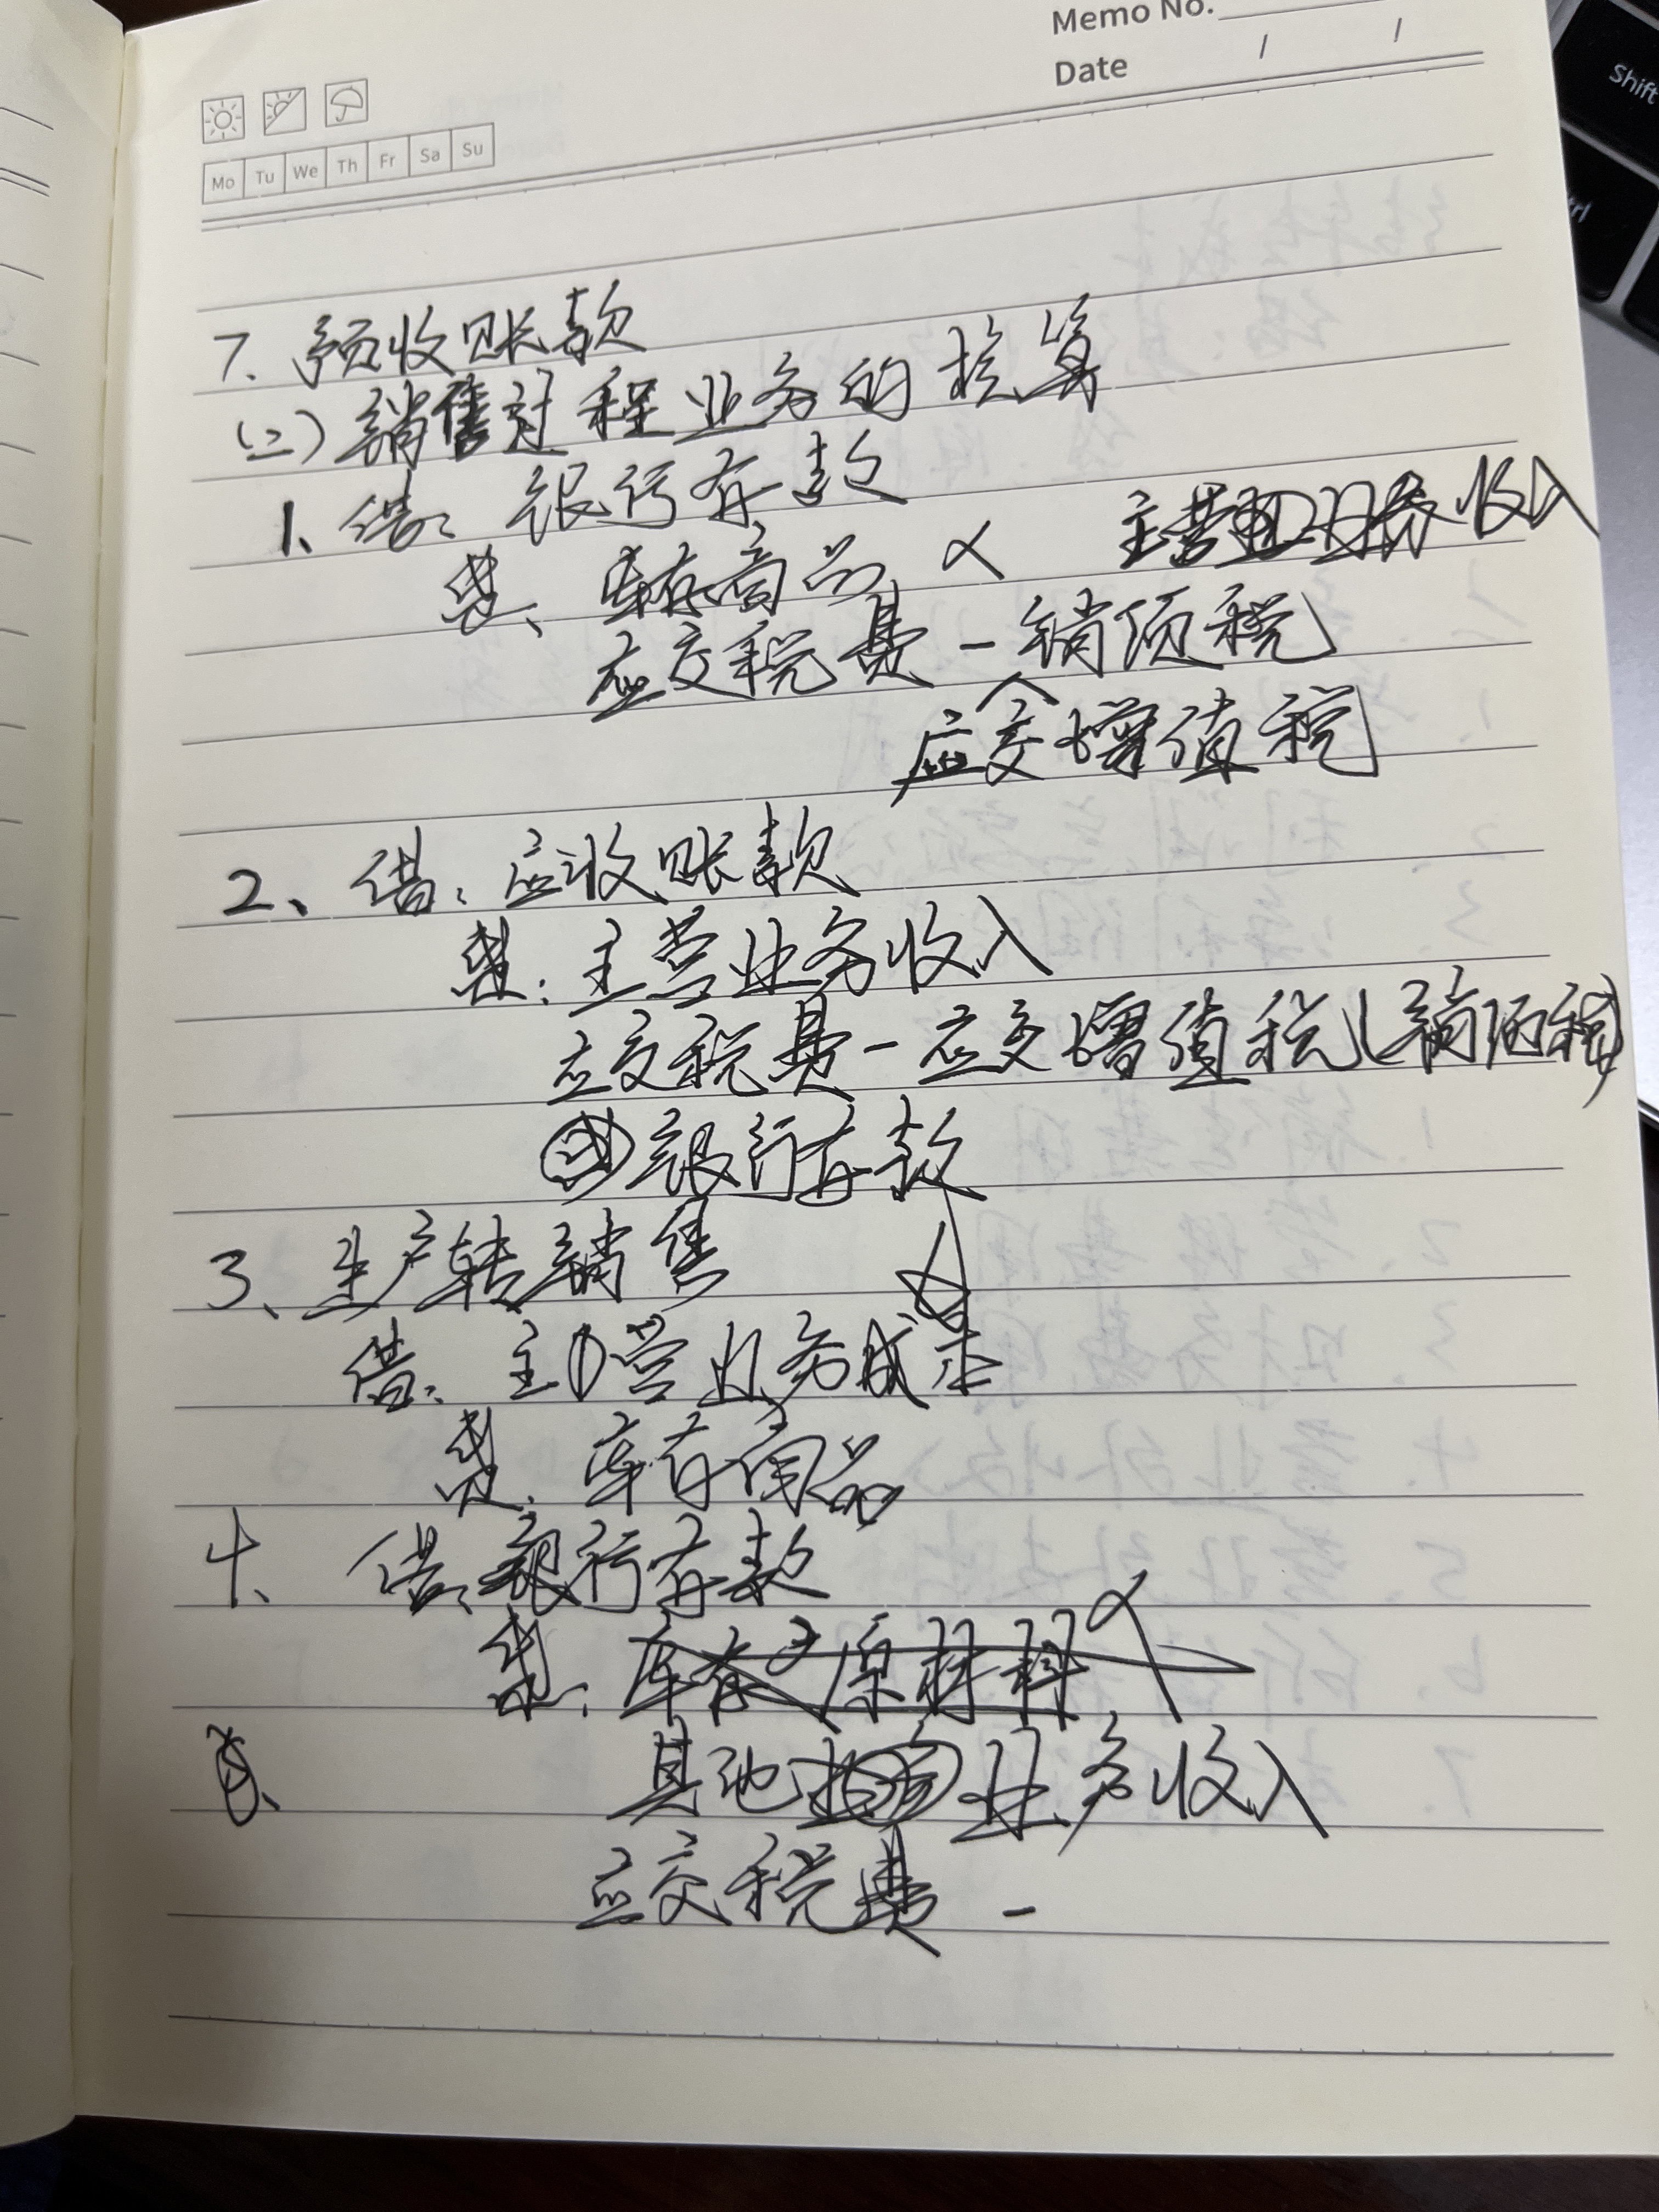 Memo No.
Date / /
Mo Tu We Th Fr Sa Su
7. 预收账款
(二) 销售过程业务的核算
1、借: 银行存款
贷、库存商品 × 主营业务收入
应交税费-销项税
应交增值税
2、借: 应收账款
贷: 主营业务收入
应交税费-应交增值税(销项税)
银行存款
3、生产转销售
借: 主营业务成本
贷: 库存商品
4、借: 银行存款
贷: 库存 原材料 ×
其他 业务收入
应交税费 -
Shift